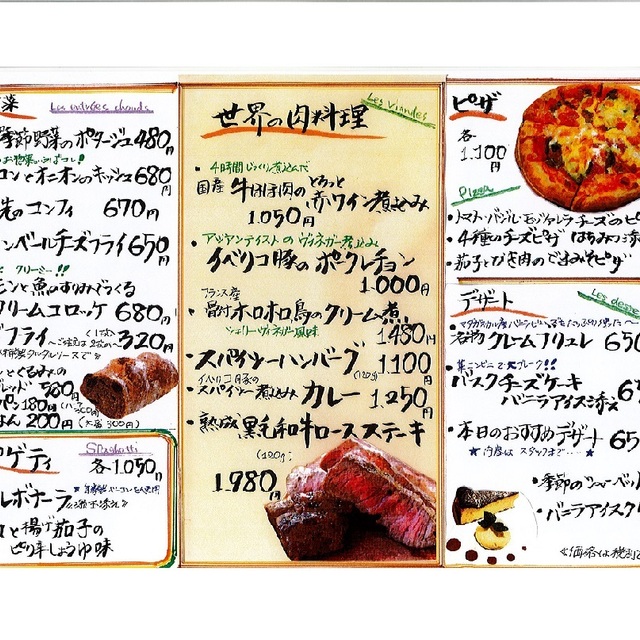 菜
Les entrées chauds
季節野菜のポタージュ 480円
コンとオニオンのキッシュ 680円
先のコンフィ 670円
ンベールチーズフライ 650円
クリーミー!!
クリームコロッケ 680円
フライ 320円
とくるみの
ブレッド 580円
パン 180円
はん 200円 (大盛300円)
ゲティ
Spaghetti
各 1.050円
ルボナーラ
と揚げ茄子の
ピリ辛しょうゆ味
世界の肉料理
Les Viandes
・4時間じっくり煮込んだ
国産 牛ほほ肉の とろっと
赤ワイン煮込み
1.050円
・アジアンテイストのヴィネガー煮込み
イベリコ豚のポークレチョン
1.000円
フランス産
・骨付ホロホロ鳥のクリーム煮
シェリーヴィネガー風味
1.480円
・スパイシーハンバーグ (120g) 1.100円
イベリコ豚の
・スパイシー煮込み カレー 1.250円
・熟成黒毛和牛ロースステーキ
(120g)
1.980円
ピザ
各
1.100円
Pizza
・トマト・バジル・モッツァレラチーズのピ
・4種のチーズピザ はちみつ添
デザート
Les desse
・名物 クレームブリュレ 650
・バスクチーズケーキ
バニラアイス添え
・本日のおすすめデザート 65
★内容はスタッフまで…★
・季節のシャーベッ
・バニラアイスク